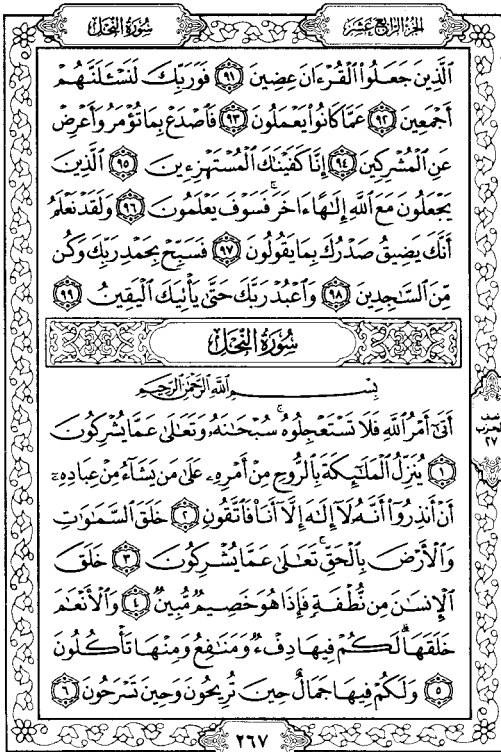 الجزء الرابع عشر
سورة النحل
الَّذِينَ جَعَلُوا۟ الْقُرْءَانَ عِضِينَ ٩١ فَوَرَبِّكَ لَنَسْـَٔلَنَّهُمْ
أَجْمَعِينَ ٩٢ عَمَّا كَانُوا۟ يَعْمَلُونَ ٩٣ فَاصْدَعْ بِمَا تُؤْمَرُ وَأَعْرِضْ
عَنِ الْمُشْرِكِينَ ٩٤ إِنَّا كَفَيْنَـٰكَ الْمُسْتَهْزِءِينَ ٩٥ الَّذِينَ
يَجْعَلُونَ مَعَ اللَّهِ إِلَـٰهًا ءَاخَرَ ۚ فَسَوْفَ يَعْلَمُونَ ٩٦ وَلَقَدْ نَعْلَمُ
أَنَّكَ يَضِيقُ صَدْرُكَ بِمَا يَقُولُونَ ٩٧ فَسَبِّحْ بِحَمْدِ رَبِّكَ وَكُن
مِّنَ السَّـٰجِدِينَ ٩٨ وَاعْبُدْ رَبَّكَ حَتَّىٰ يَأْتِيَكَ الْيَقِينُ ٩٩
سُورَةُ النَّحْلِ
بِسْمِ اللَّهِ الرَّحْمَـٰنِ الرَّحِيمِ
أَتَىٰٓ أَمْرُ اللَّهِ فَلَا تَسْتَعْجِلُوهُ ۚ سُبْحَـٰنَهُۥ وَتَعَـٰلَىٰ عَمَّا يُشْرِكُونَ
١ يُنَزِّلُ الْمَلَـٰٓئِكَةَ بِالرُّوحِ مِنْ أَمْرِهِۦ عَلَىٰ مَن يَشَآءُ مِنْ عِبَادِهِۦٓ
أَنْ أَنذِرُوٓا۟ أَنَّهُۥ لَآ إِلَـٰهَ إِلَّآ أَنَا۠ فَاتَّقُونِ ٢ خَلَقَ السَّمَـٰوَٰتِ
وَالْأَرْضَ بِالْحَقِّ ۚ تَعَـٰلَىٰ عَمَّا يُشْرِكُونَ ٣ خَلَقَ
الْإِنسَـٰنَ مِن نُّطْفَةٍ فَإِذَا هُوَ خَصِيمٌ مُّبِينٌ ٤ وَالْأَنْعَـٰمَ
خَلَقَهَا ۗ لَكُمْ فِيهَا دِفْءٌ وَمَنَـٰفِعُ وَمِنْهَا تَأْكُلُونَ
٥ وَلَكُمْ فِيهَا جَمَالٌ حِينَ تُرِيحُونَ وَحِينَ تَسْرَحُونَ ٦
نصف
الحزب
٢٧
٢٦٧